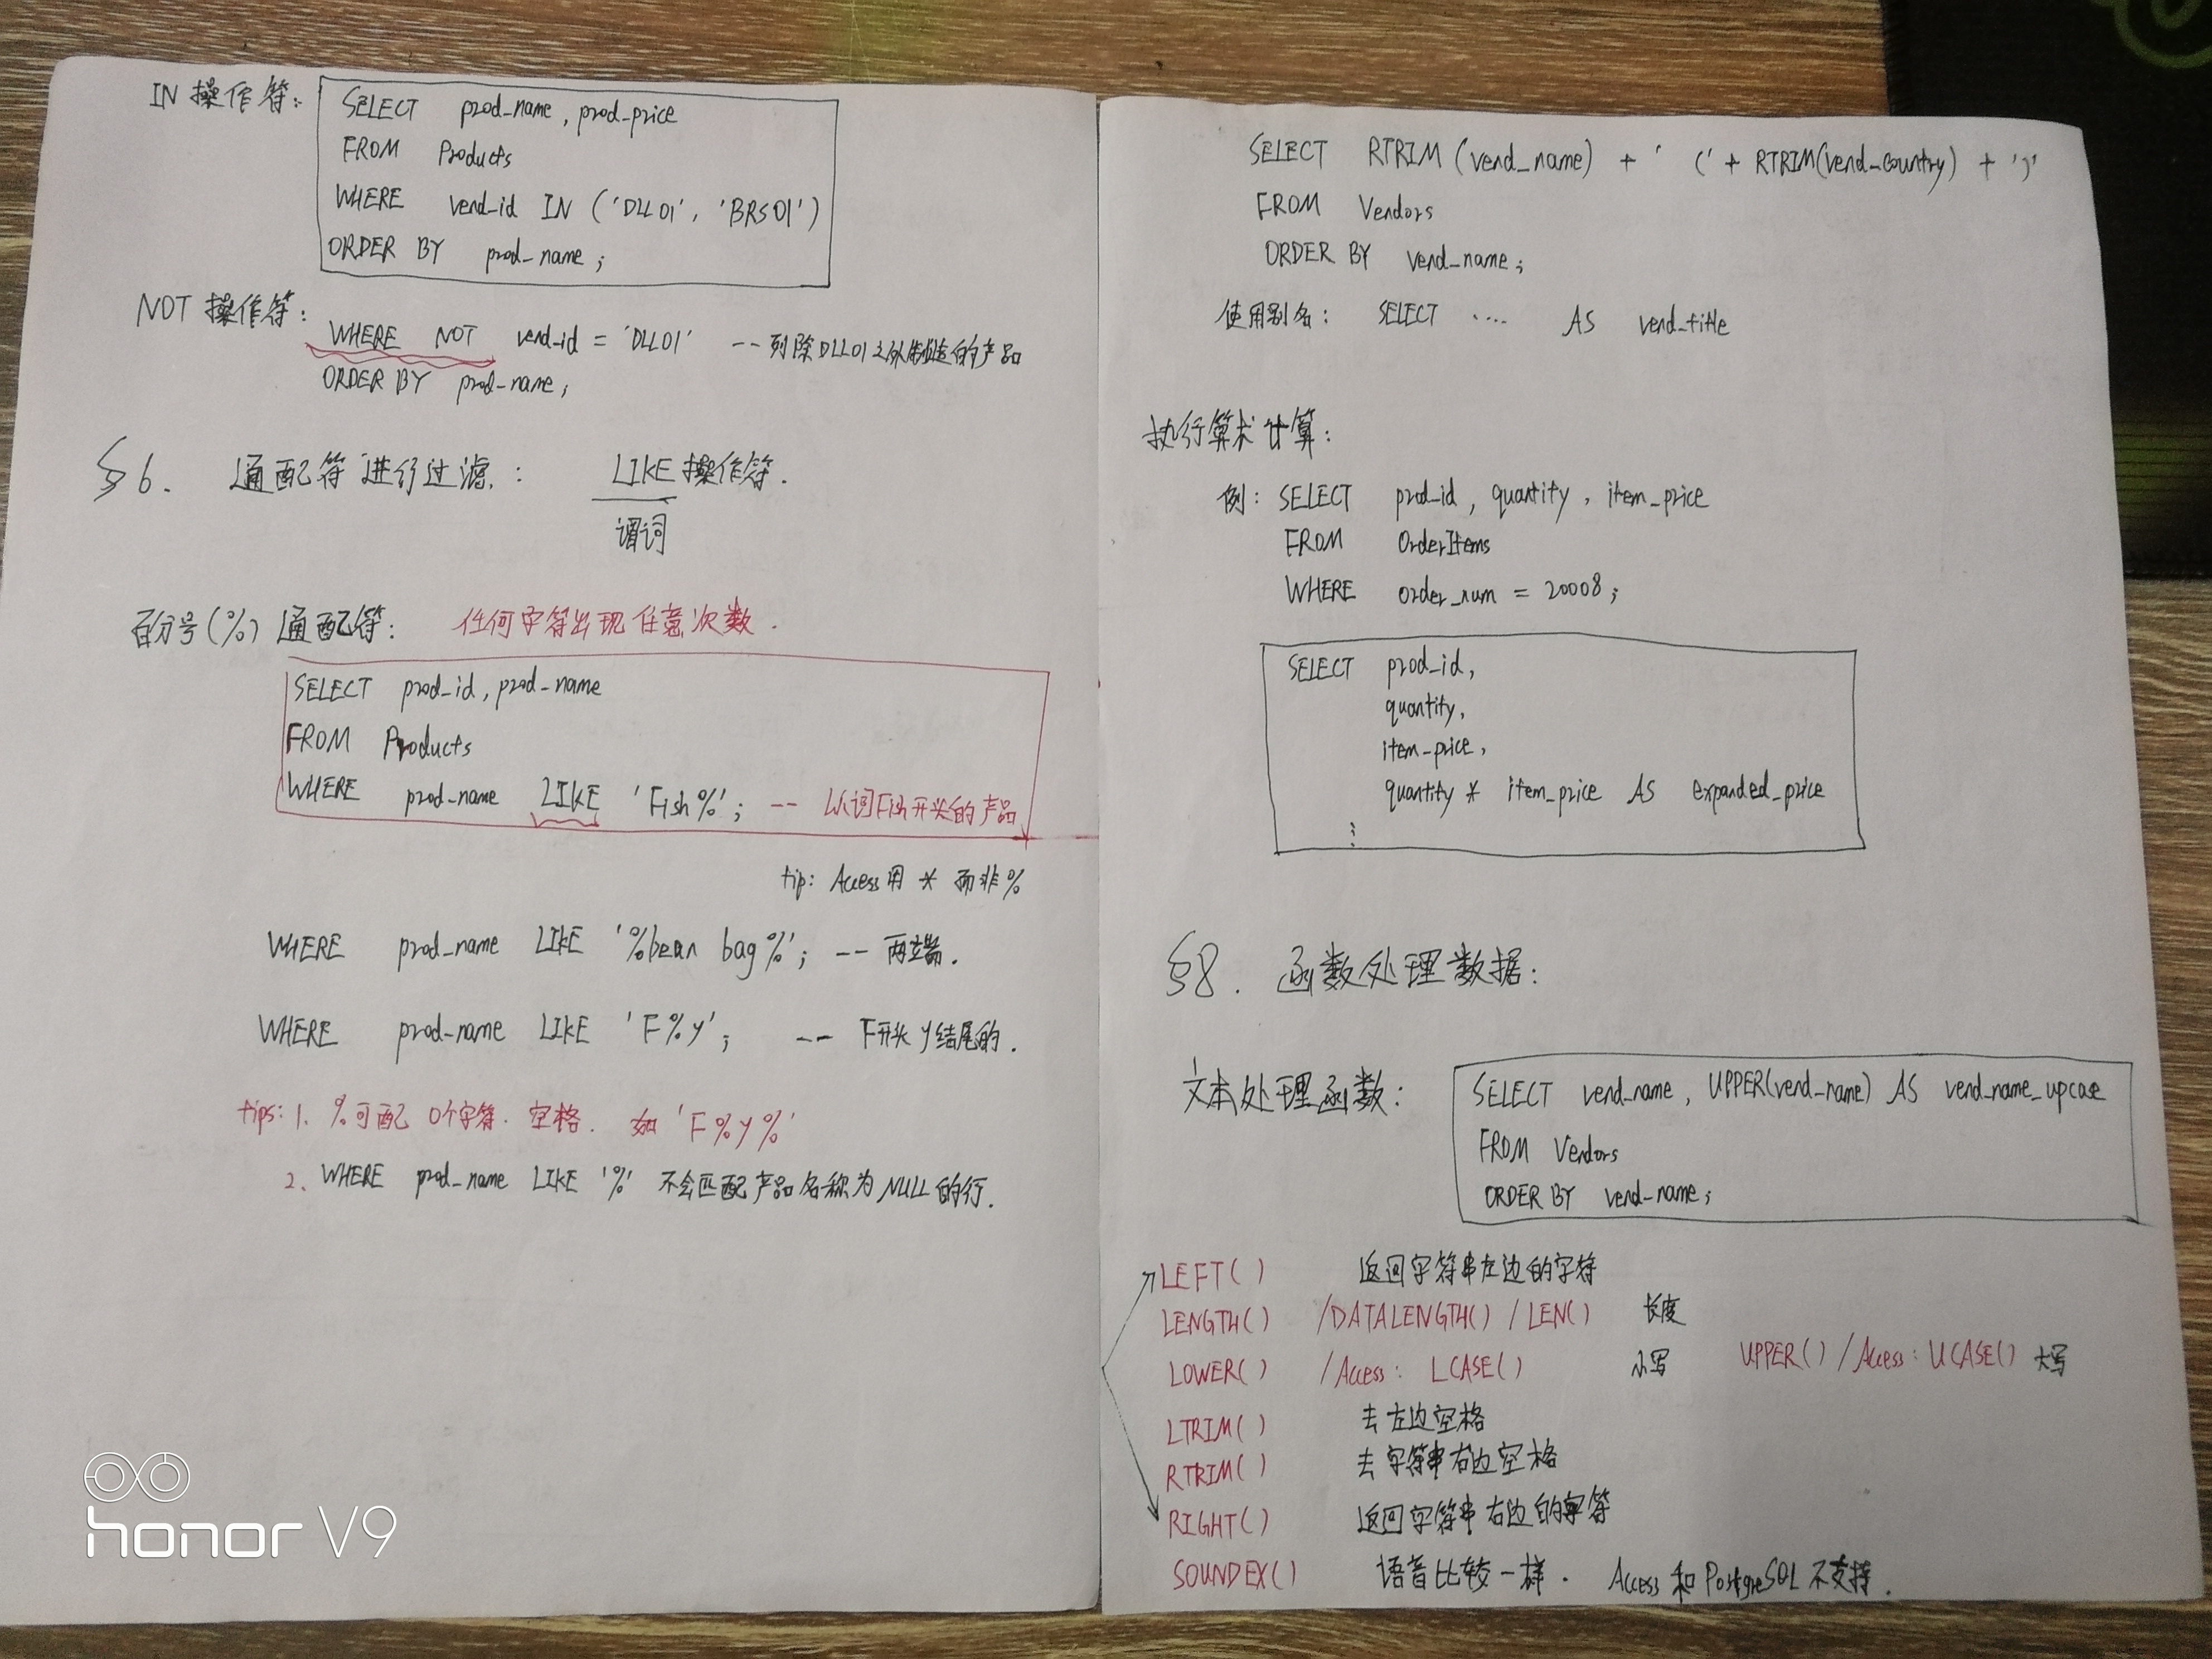 IN 操作符：
SELECT prod_name, prod_price
FROM Products
WHERE vend_id IN ('DLL01', 'BRS01')
ORDER BY prod_name;
NOT 操作符：
WHERE NOT vend_id = 'DLL01' -- 列除DLL01之外制造的产品
ORDER BY prod_name;
§6. 通配符进行过滤： LIKE操作符.
谓词
百分号(%)通配符： 任何字符出现任意次数.
SELECT prod_id, prod_name
FROM Products
WHERE prod_name LIKE 'Fish%'; -- 以词Fish开头的产品
tip: Access用 * 而非%
WHERE prod_name LIKE '%bean bag%'; -- 两端.
WHERE prod_name LIKE 'F%y'; -- F开头y结尾的.
tips: 1. %可配 0个字符. 空格. 如 'F%y%'
2. WHERE prod_name LIKE '%' 不会匹配产品名称为NULL的行.
honor V9
SELECT RTRIM(vend_name) + ' (' + RTRIM(vend_country) + ')'
FROM Vendors
ORDER BY vend_name;
使用别名： SELECT .... AS vend_title
执行算术计算：
例：SELECT prod_id, quantity, item_price
FROM OrderItems
WHERE order_num = 20008;
SELECT prod_id,
quantity,
item_price,
quantity * item_price AS expanded_price
;
§8. 函数处理数据：
文本处理函数：
SELECT vend_name, UPPER(vend_name) AS vend_name_upcase
FROM Vendors
ORDER BY vend_name;
LEFT() 返回字符串左边的字符
LENGTH() /DATALENGTH() / LEN() 长度
LOWER() /Access: LCASE() 小写 UPPER() /Access: UCASE() 大写
LTRIM() 去左边空格
RTRIM() 去字符串右边空格
RIGHT() 返回字符串右边的字符
SOUNDEX() 语音比较一样. Access和PostgreSQL不支持.